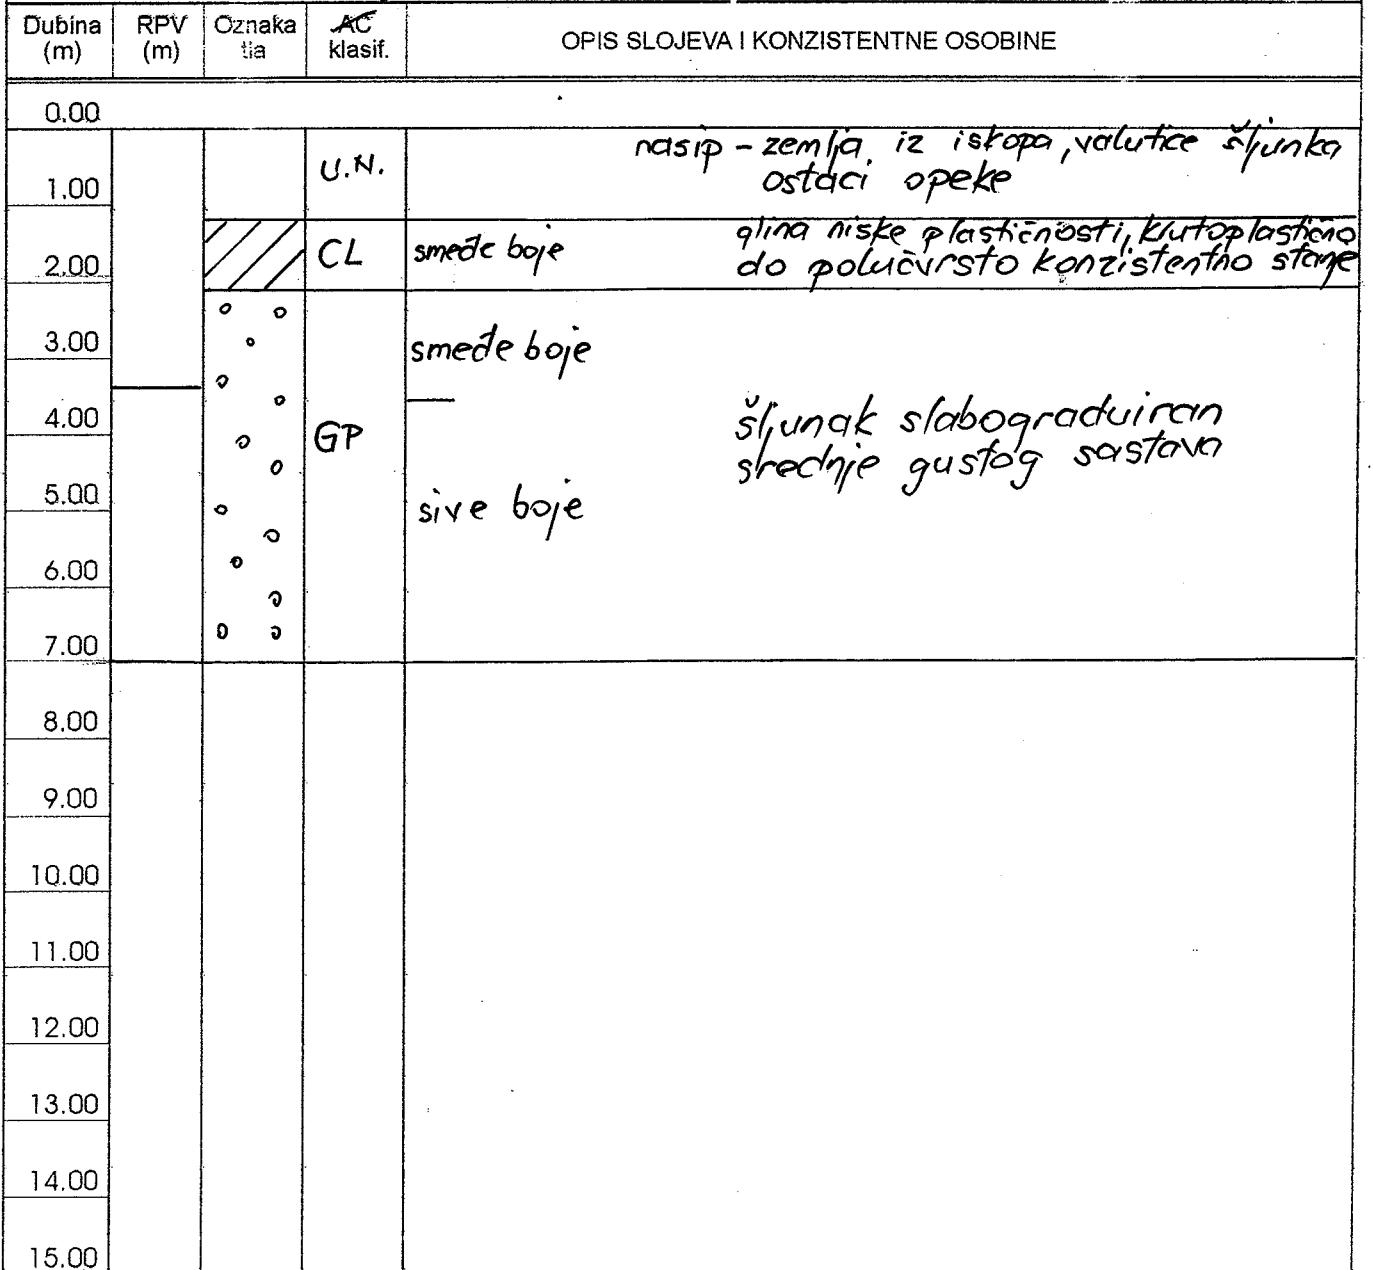 Dubina (m) RPV (m) Oznaka tla AC klasif. OPIS SLOJEVA I KONZISTENTNE OSOBINE
0.00
nasip - zemlja iz iskopa, valutice šljunka
U.N.
1.00 ostaci opeke
glina niske plastičnosti, krutoplastično
CL smeđe boje
2.00 do polučvrsto konzistentno stanje
3.00 smeđe boje
4.00 šljunak slabograduiran
GP
srednje gustog sastava
5.00 sive boje
6.00
7.00
8.00
9.00
10.00
11.00
12.00
13.00
14.00
15.00